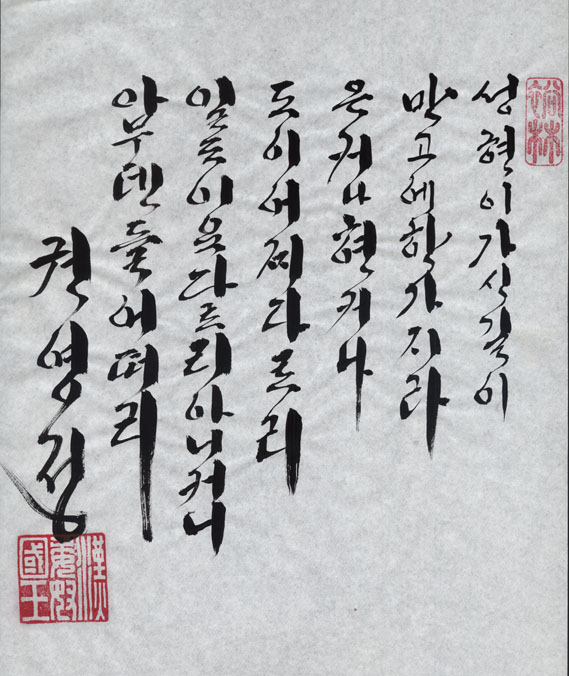 성현이가신길이
만고에한가지라
은커나현커나
도이어찌다르리
일도이요다르리아니커니
아무덴들어떠리
권영정